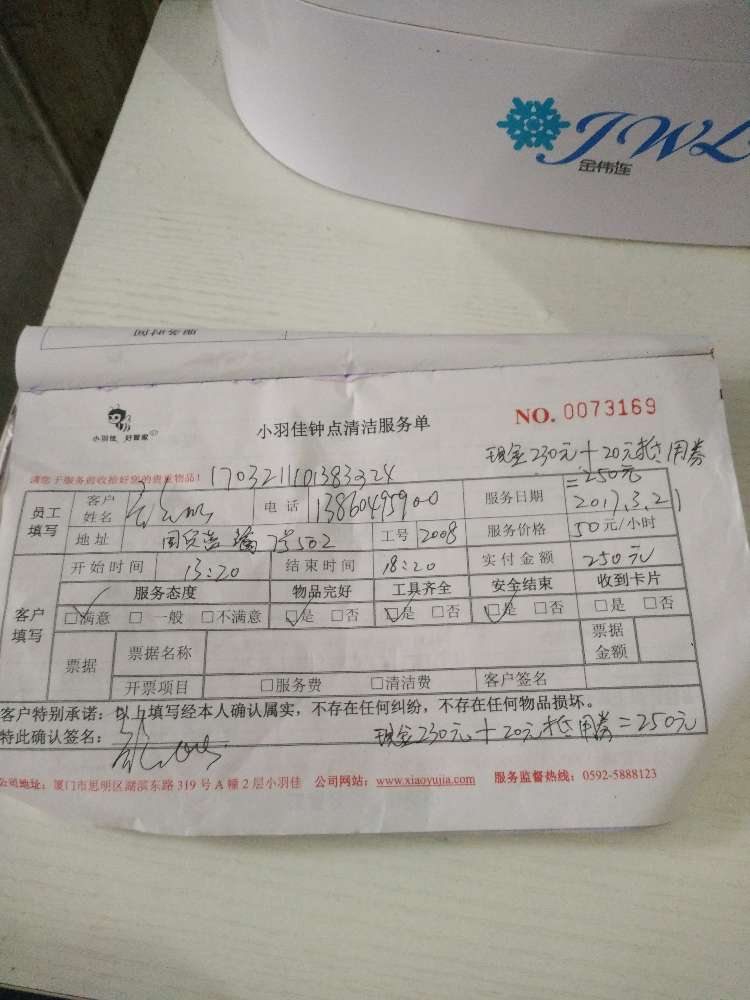 JWL
金伟连
小羽佳 好管家
小羽佳钟点清洁服务单
NO. 0073169
现金230元+20元抵用券
=250元
请您于服务前收拾好您的贵重物品!
170321101383324
员工填写
客户姓名
电话
服务日期 2017.3.21
地址 502
工号 2008
服务价格 50元/小时
开始时间 13:20
结束时间 18:20
实付金额 250元
客户填写
服务态度 物品完好 工具齐全 安全结束 收到卡片
□满意 □一般 □不满意 □是 □否 □是 □否 □是 □否 □是 □否
票据
票据名称
票据金额
开票项目 □服务费 □清洁费 客户签名
客户特别承诺:以上填写经本人确认属实,不存在任何纠纷,不存在任何物品损坏。
特此确认签名:
现金230元+20元抵用券=250元
公司地址:厦门市思明区湖滨东路319号A幢2层小羽佳 公司网站:www.xiaoyujia.com 服务监督热线:0592-5888123